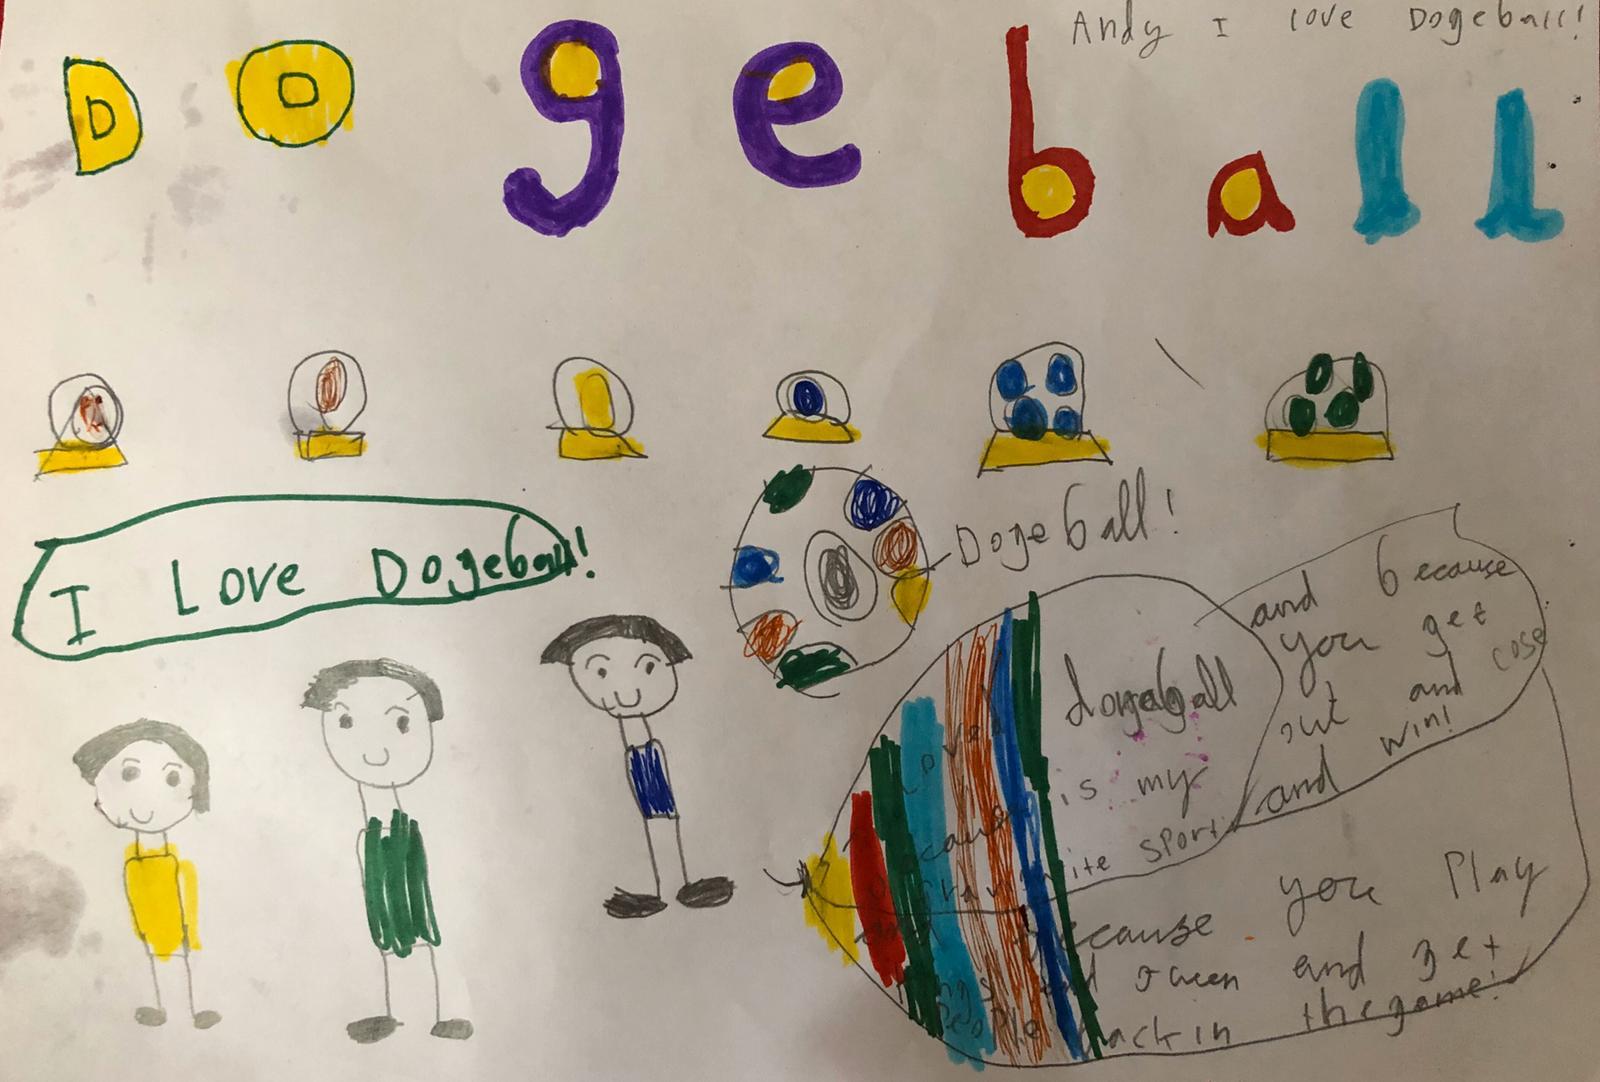 Andy I love Dogeball!
Dogeball
I Love Dogeball!
Dogeball!
dogeball
is my
sport
and because
you get
out and cose
and win!
because you Play
and get
People back in the game!